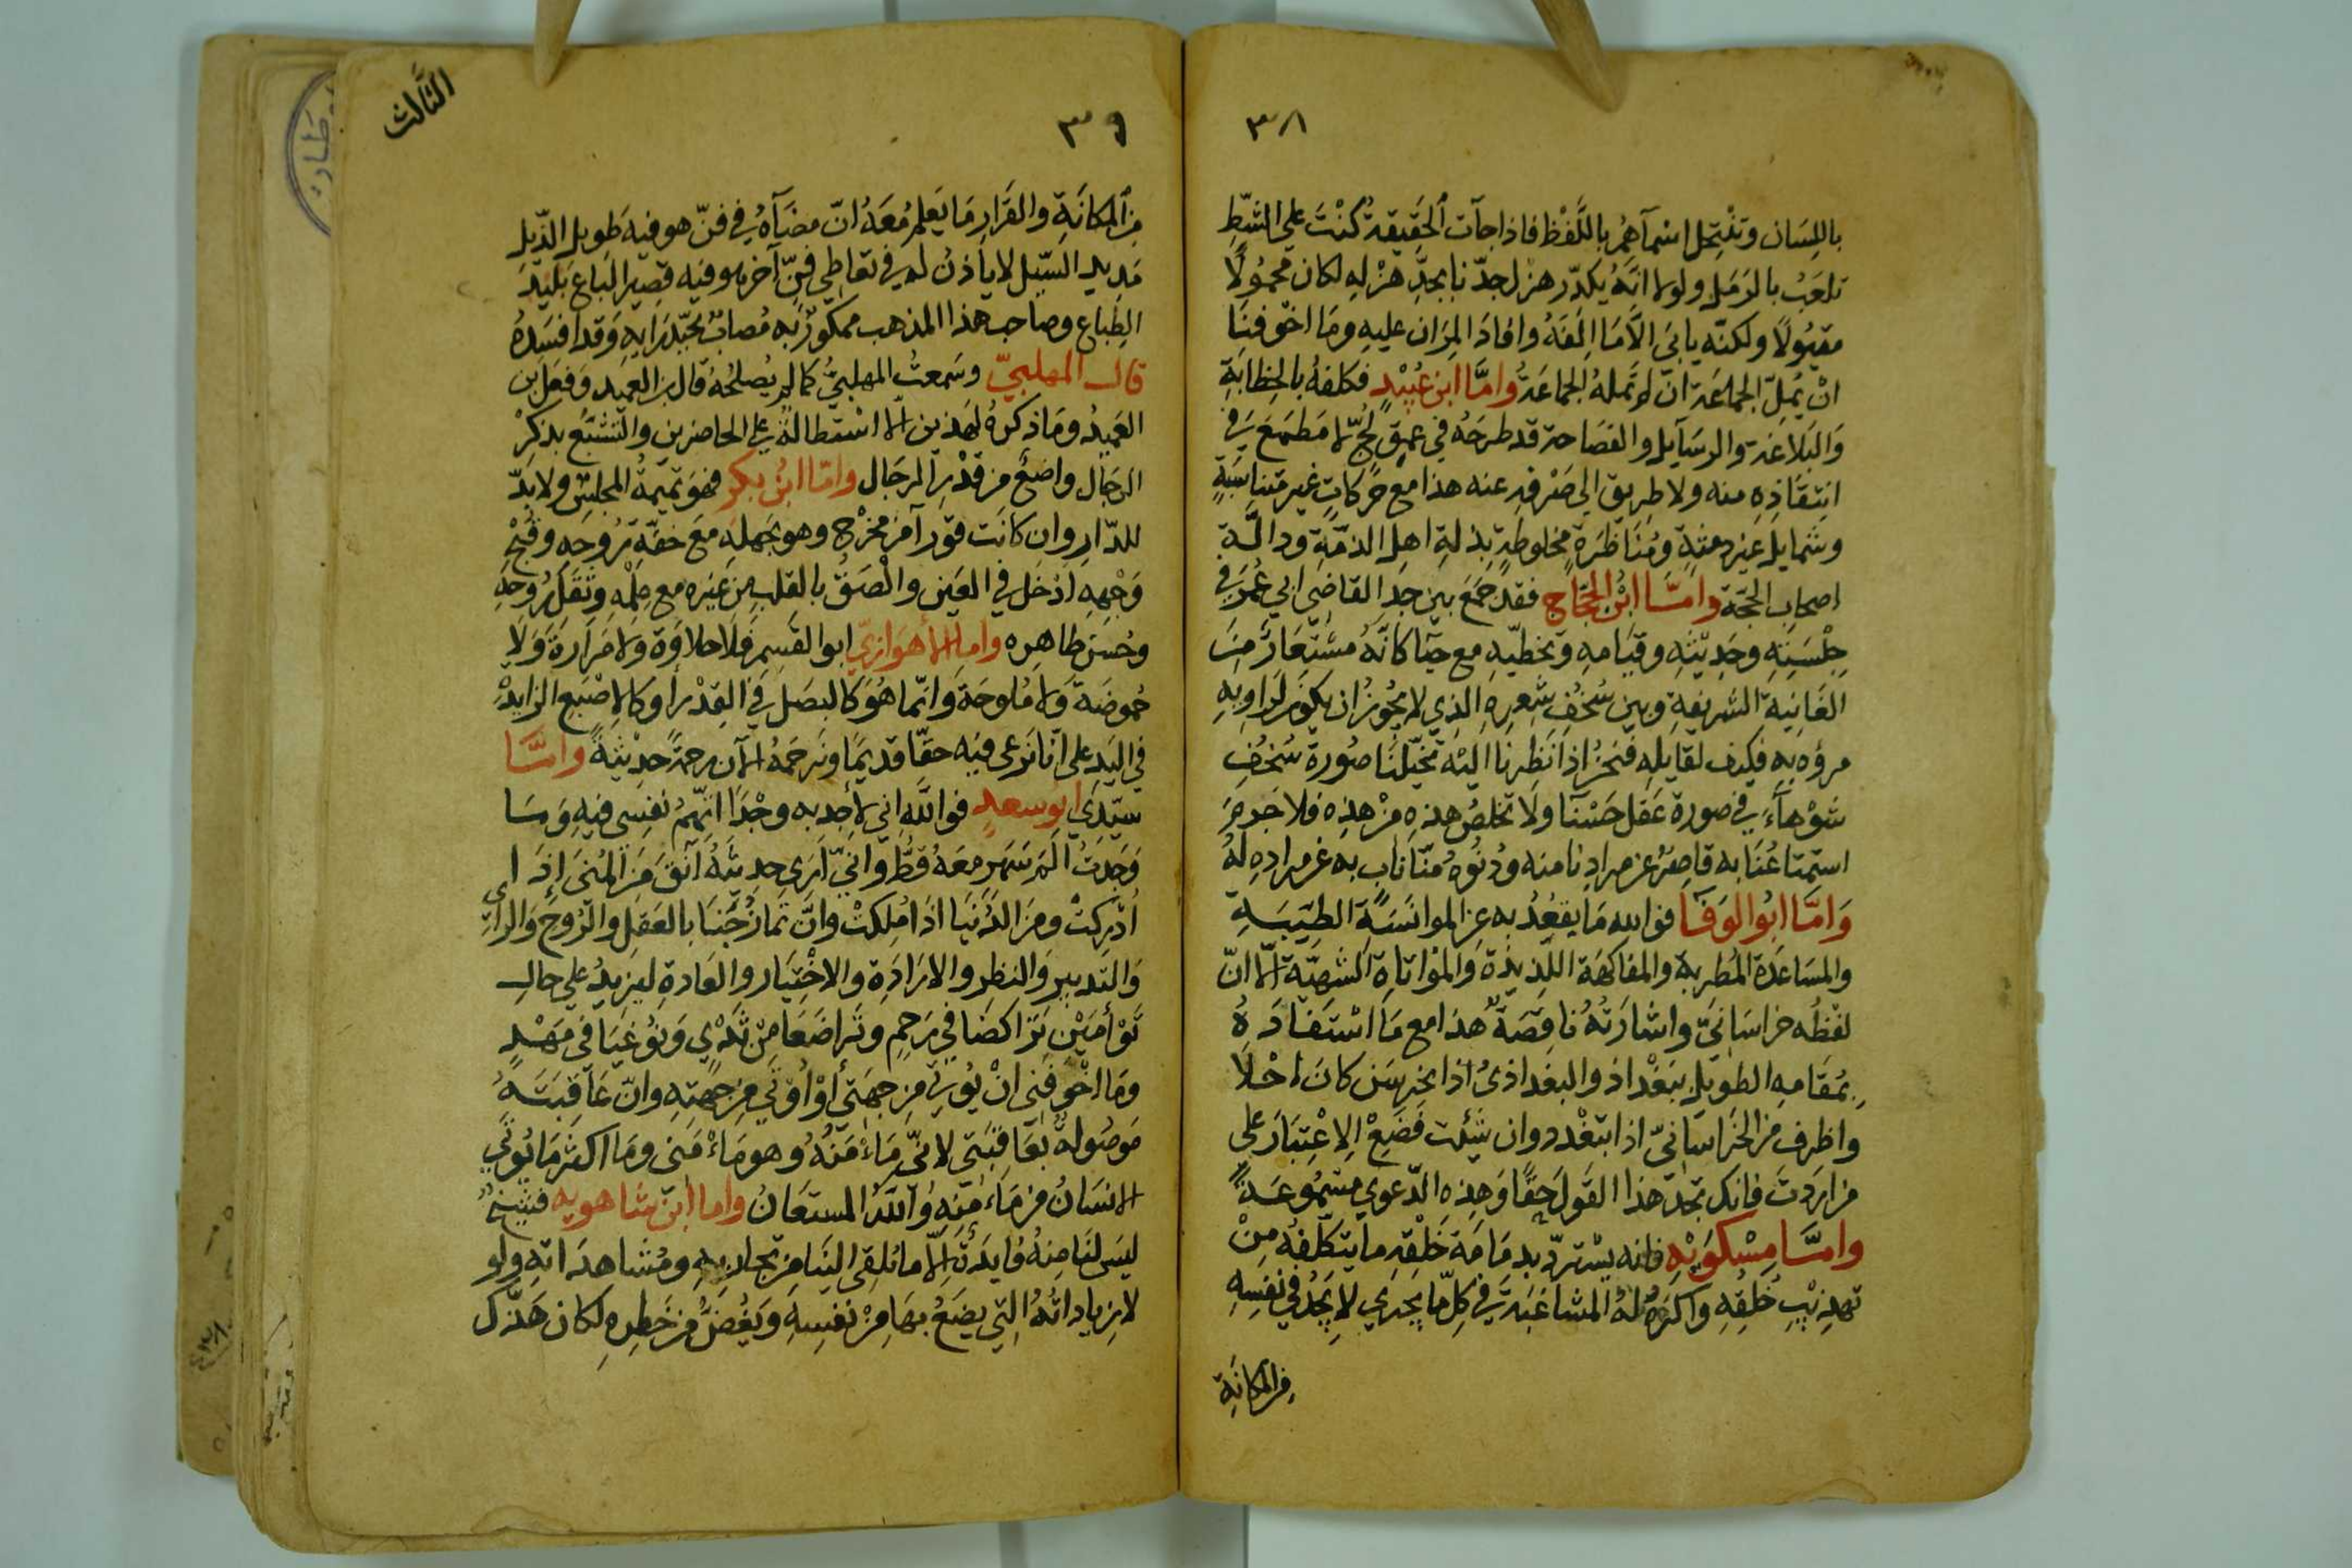 ٣٨
باللِسَان وتَنْتحِل اسْمآهُم باللَّفْظ فاذا جآت الحَقِيقة كُنْتَ علي الشَطِّ
تلعَبُ بالرَمَل ولولا انَّهُ يكدّر هزل جدّنا بجدِّ هزْلهِ لكان محمُولًا
مقبُولًا ولكنّه يابَي الاَّ مَا اَلِفَهُ وافادَ المِرَان عليهِ ومَا اخوفنَا
انْ يَمِلّ الجماعَة ان لم تَملهُ الجماعَة وامَّا ابن عُبيْدٍ فكلفهُ بالخِطابَةِ
وَالبَلاغة والرسَآيل والفصَاحة قد طرحَهُ في عميق لُجٍّ لا مَطمَعَ في
انتِقَاذِهِ منه ولا طرِيق الي صَرْفهِ عنه هذا مع حَرَكاتٍ غير متناسَبَةٍ
وشمايل غير دمثةٍ ومُنَاظَرَةٍ مخلوطةٍ بِذلةِ اهلِ الذمّةِ ودالَّة
اصحابِ الحجّة وامَّا ابْنُ الحَجّاج فقد جَمَعَ بين جدِ القاضِي ابي عُمَرَ في
جِلْسَتِهِ وحَدِيْثِه وقِيَامهِ وتخطيّهِ مع حيَآ كانّهُ مسْتعَارٌ مِنَ
الغَانِيَة الشرِيفةِ وبين سُخُفِ شِعرِهِ الذِي لا يجُوزُ ان يكون لرَاويهِ
مروّه بهِ فكيف لقايلهِ فنحنُ اذا نَظرنا اليْه تخيّلْنَا صُورة سُخُفٍ
شَوْهآءَ في صورة عَقل حَسْنآ ولا تخلصُ هذهِ مِنْ هذِه فلا جَرَمَ
استمتاعُنَا به قاصِرٌ عن مرادِنا منه ودُنُوّهُ منّا نابٍ به عن مرادِهِ لهُ
وَامَّا ابُوالوَفَآ فوالله مَا يقعُدُ به عن الموانسَةِ الطيّبَةِ
والمسَاعدَة المُطربة والمفاكهَة اللّذِيذَة وَالموَاتاة الشهيّة الَّا انّ
لفْظُه خراسَانِيّ واشارَتُهُ ناقِصَةٌ هذا مع مَا اسْتَفادَهُ
بمُقامهِ الطويلِ ببَغْداذ والبغداذيُ اذا تخرسَن كانَ احْلَا
واظرف من الخُراسَانيّ اذا تبَغْدد وان شئت فَضَعْ الاِعْتِبَارَ علي
من اردتَ فانك تجدُ هذا القَول حقًّا وَهذِه الدّعوي مسْموعَةً
وامَّا مِسْكوَيْهِ فانه يسْتردّ بدمَامَة خَلْقِه ما يتكلّفه مِنْ
تهذِيْبِ خُلُقِهِ واكرَهُ لهُ المشاغبَةَ في كلِّ ما يجرَي لا يَجُدُ في نفسِهِ
من المكانَةِ
٣٩
الثَّالث
من المكانَةِ والقَرَارِ مَا يَعلمُ مَعَهُ انّ مضَآهُ في فنّ هو فيهِ طَويل الذّيل
مَدِيد السَّيْل لا ياذنُ له في تعَاطِي فنّ آخر هو فيه قصِير البَاع بَليْد
الطِبَاع وصاحب هذا المذهب ممكورٌ به مُصابٌ بجيّدِ رَايهِ وَقد افسَدهُ
قال المهلبيّ وسَمعتُ المهلبيُّ كما لم يُصْلحُهُ قال ابن العمِيد وَفعَل ابن
العَمِيدُ ومَا ذكرهُ لهَذين الَّا استطالَةً علي الحاضرين والتَشَبُّع بذِكرْ
الرجَال واضعٌ من قَدْر الرجَال وامَّا ابنُ بكرٍ فهوَ تمِيمَةُ المجلسْ ولا بدّ
للدّارِ وان كانت قورآ من مخرَج وهو بجهلهِ مَعَ خفّةِ رُوحهِ وقُبْح
وَجْهِهِ ادْخل في العَين والْصَقُ بالقلب مِن غَيره مع عِلْمِه وثِقَل رُوحهِ
وحُسنِ ظاهِره وامَّا الأهوَازيّ ابو القَسِم فلَا حلاوَة ولا مَرَارَة وَلَا
حُموضَة ولا مُلوحَة وَانّما هُوَ كالبصَل في القِدْر او كالاِصْبَع الزايدْ
في اليَد علي انّا نَرْعى فيه حقّا قديمًا ونرحَمُهُ الآن رحمةً حدِيثةً وامَّا
سيّدي ابُو سعدٍ فوالله اني لأجِد به وجْدًا اتّهمُ نفسِي فيهِ وَمَا
وَجَدتُ الَم سَهَر معَهُ قطُّ واني ارَي حديثهُ آنَقَ مِنَ المُنَي اِذَا
اُدْرِكتْ ومن الدُنْيَا اذَا مُلِكتْ وانّ تمازُجَنَا بالعَقل والرُوح وَالراي
وَالتَدبير وَالنظر والارَادَة والاخْتِيَار والعَادة ليزيدُ علي حال
تَوْأمَيْن تَرَاكضَا في رَحِم وتَراضَعَا مِن ثَدْيٍ وَنُوغيَا في مَهْدٍ
ومَا اخْوَفَني انْ يُوْتي مِن جهَتي أوْ اُوتَي مِن جهَتِهِ وانّ عَاقِبَتَهُ
مَوصُولةٌ بعَاقِبَتي لانّي مَاءُ مَنّهُ وهو مَاءُ مَنى ومَا اكثر مَا يُوتَي
الانسَانُ من مَاءِ مَنِهِ وَاللهُ المستعَانُ وامَّا ابن شاهويه فشيخٌ
ليسَ لنَا مِنهُ فايدَة الَّا ما نُلقي الينَا من تجاربهِ ومُشاهدَاتهِ ولو
لا زياداتُهُ التِي يضَعُ بهَا مِنْ نفسِهِ وَيَغُضُّ من خَطرِهِ لكان هَذَاك